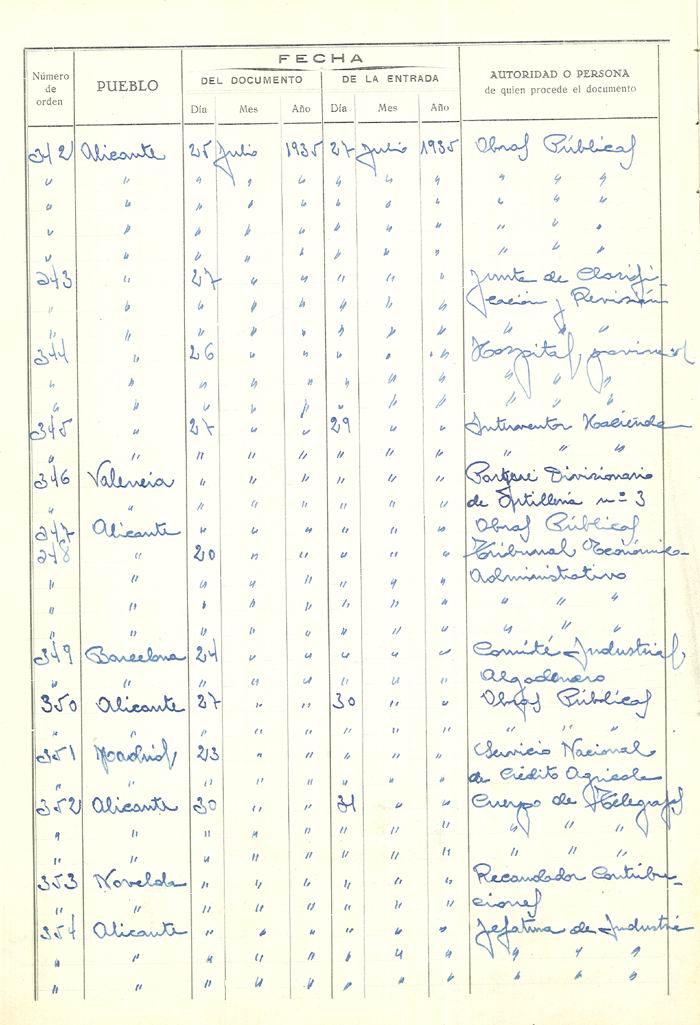 FECHA
Número de orden PUEBLO DEL DOCUMENTO DE LA ENTRADA AUTORIDAD O PERSONA de quien procede el documento
Día Mes Año Día Mes Año
342 Alicante 25 Julio 1935 27 Julio 1935 Obras Públicas
" " " " " " " " " " "
" " " " " " " " " " "
" " " " " " " " " " "
" " " " " " " " " " "
343 " 27 " " " " " Junta de Clasifi-
" " " " " " " " cación y Revisión
" " " " " " " " " " "
344 " 26 " " " " " Hospital provincial
" " " " " " " " " " "
" " " " " " " " " " "
345 " 27 " " 29 " " Interventor Hacienda
" " " " " " " " " " "
346 Valencia " " " " " " Parque Divisionario
" " " " " " " " de Artilleria nº 3
347 Alicante " " " " " " Obras Públicas
348 " 20 " " " " " Tribunal Económico-
" " " " " " " " Administrativo
" " " " " " " " " " "
" " " " " " " " " " "
349 Barcelona 24 " " " " " Comité Industrial
" " " " " " " " Algodonero
350 Alicante 27 " " 30 " " Obras Públicas
" " " " " " " " " " "
351 Madrid 23 " " " " " Servicio Nacional
" " " " " " " " de Crédito Agricola
352 Alicante 30 " " 31 " " Cuerpo de Telegrafos
" " " " " " " " " " "
" " " " " " " " " " "
353 Novelda " " " " " " Recaudador Contribu-
" " " " " " " " ciones
354 Alicante " " " " " " Jefatura de Industria
" " " " " " " " " " "
" " " " " " " " " " "